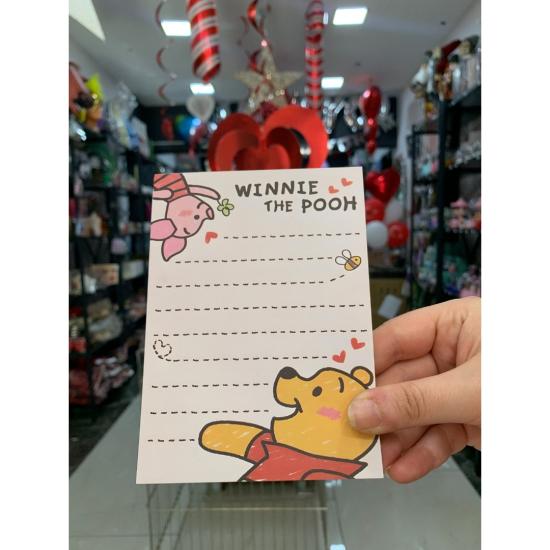 WINNIE
THE POOH